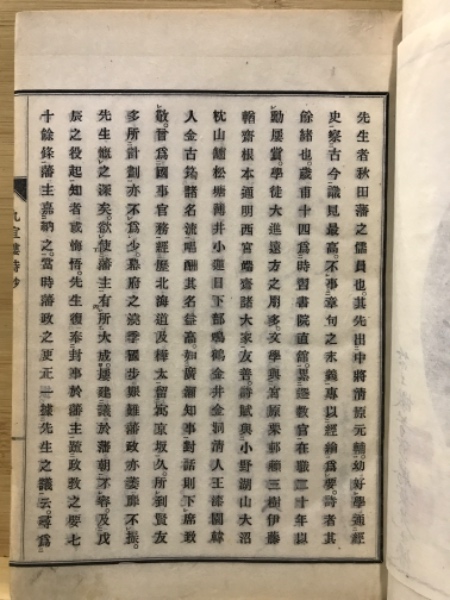 先生者秋田藩之儒員也。其先出中將清原元輔。幼好學通經
史。察古今。識見最高。不事章句之末義。專以經綸爲要。詩者其
餘緒也。歲甫十四爲時習書院直館。累遷教官。在職二十年。以
勳屢賞。學徒大進遠方之朋多。文學與萱原栗邨藤三樹伊藤
輶齋根本通明西宮齋諸大家友善。詩賦與小野湖山大沼
枕山鱸松塘蒲井小蓮日下部鳴鶴金井金洞清人王漆園韓
人金古筠諸名流唱酬。其名益高。如廣瀨知事對話則下席敬
敬。嘗爲國事官務。經歷北海道及樺太。留寓京坂久。所到賢友
多。所計劃亦不爲少。幕府之澆季國步艱難。藩政亦萎靡不振。
先生慨之深矣。欲使藩主有所大成。屢建議於藩朝不容。及戊
辰之役起。知者或悔悟。先生復奉封事於藩主。疏政教之要七
十餘條。藩主嘉納之。當時藩政之更正一據先生之議云。尋爲
九宜樓詩鈔